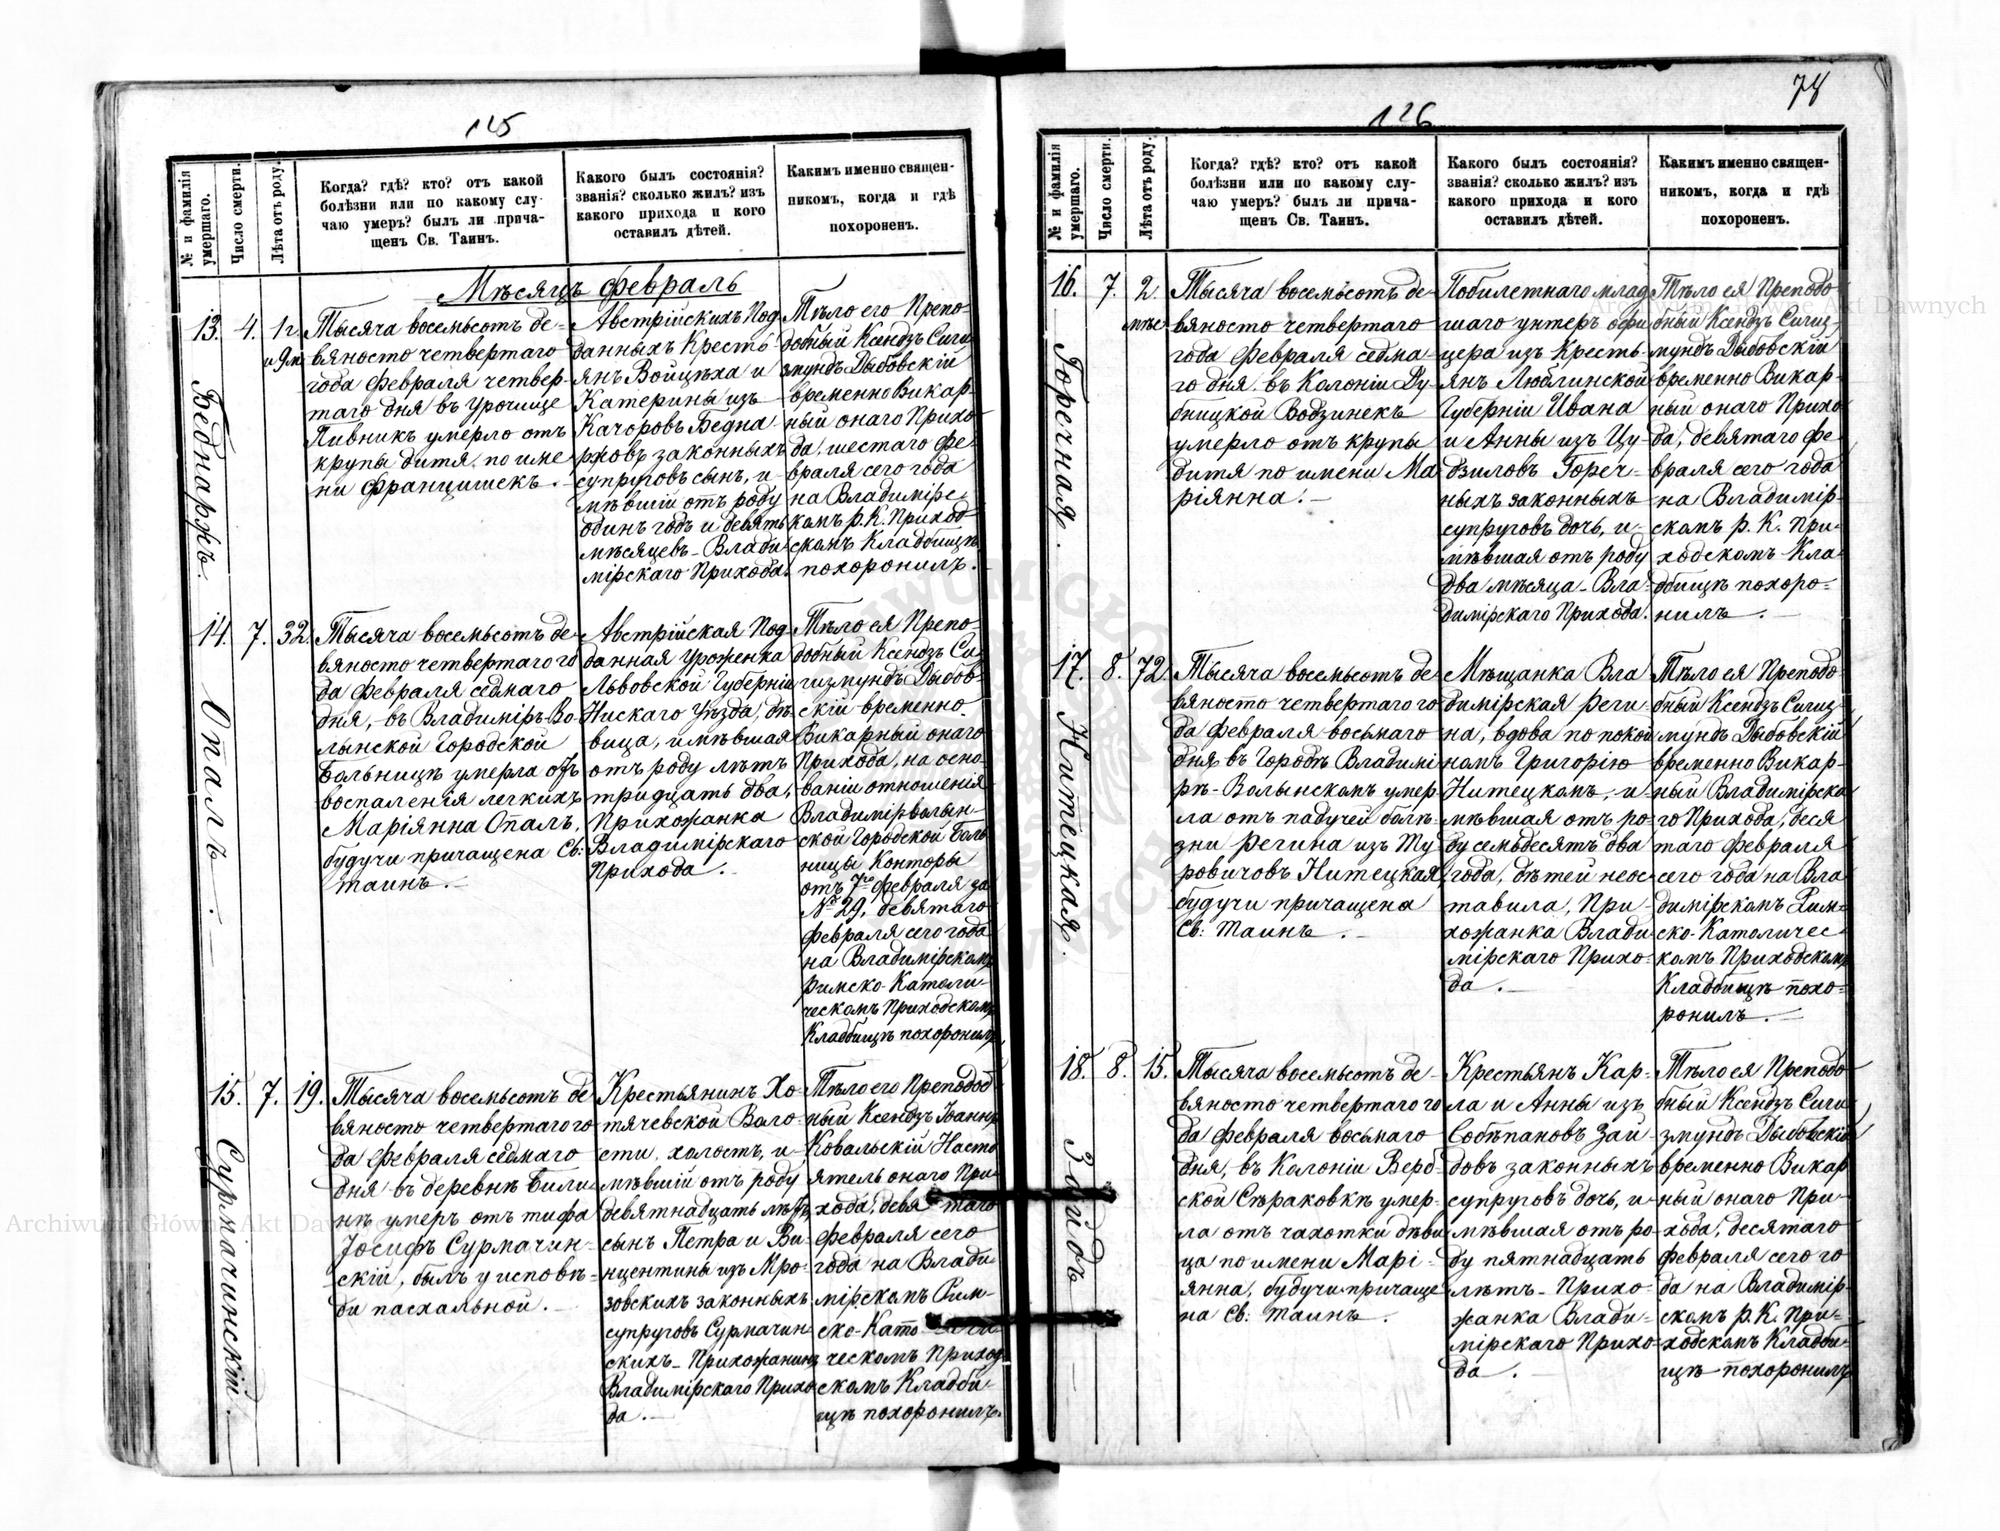 125
№ и фамилія умершаго.
Число смерти.
Лѣта отъ роду.
Когда? гдѣ? кто? отъ какой
болѣзни или по какому слу-
чаю умеръ? былъ ли прича-
щенъ Св. Таинъ.
Какого былъ состоянія?
званія? сколько жилъ? изъ
какого прихода и кого
оставилъ дѣтей.
Какимъ именно священ-
никомъ, когда и гдѣ
похороненъ.
Мѣсяцъ февраль
13.
Беднаржъ.
4.
1 г.
и 9 м.
Тысяча восемьсотъ де-
вяносто четвертаго
года февраля четвер-
таго дня въ урочище
Пивникъ умерло отъ
крупы дитя по име
ни Францишекъ.
Австрійскихъ Под
данныхъ Кресть-
янъ Войцѣха и
Катерины изъ
Качоровъ Бедна
ржовъ законныхъ
супруговъ сынъ, и-
мѣвшій отъ роду
одинъ годъ и девять
мѣсяцевъ - Влади-
мірскаго Прихода.
Тѣло его Препо-
добный Ксендзъ Сиги
змундъ Дыбовскій
временно Викар-
ный онаго Прихо-
да, шестаго фе-
враля сего года
на Владимірс-
комъ р. К. Приход-
скомъ Кладбищѣ
похоронилъ.
14.
Опаль.
7.
32.
Тысяча восемьсотъ де-
вяносто четвертаго го
да февраля седмаго
дня, въ Владимір-Во-
лынской Городской
Больницѣ умерла отъ
воспаленія легкихъ
Маріянна Опалъ,
будучи причащена Св:
таинъ.
Австрійская Под-
данная уроженка
Львовской Губерніи
Нискаго Уѣзда, дѣ-
вица, имѣвшая
отъ роду лѣтъ
тридцать два,
прихожанка
Владимірскаго
Прихода.
Тѣло ея Препо-
добный Ксендзъ Си-
гизмундъ Дыбов-
скій временно
Викарный онаго
Прихода, на осно-
ваніи отношенія
Владимірволын-
ской Городской Боль
ницы Конторы
отъ 7го февраля за
№ 29, девятаго
февраля сего года
на Владимірскомъ
римско-Католи-
ческомъ Приходскомъ
Кладбищѣ похоронилъ
15.
Сурмачинскій.
7.
19.
Тысяча восемьсотъ де
вяносто четвертаго го
да февраля седмаго
дня въ деревнѣ Били-
нѣ умеръ отъ тифа
Іосифъ Сурмачин-
скій, былъ у исповѣ-
ди пасхальной.
Крестьянинъ Хо-
тячевской Воло-
сти, холостъ, и-
мѣвшій отъ роду
девятнадцать лѣтъ,
сынъ Петра и Ви-
нцентины изъ Мро-
зовскихъ законныхъ
супруговъ Сурмачин-
скихъ - Прихожанинъ
Владимірскаго Прихо
да.
Тѣло его Преподоб-
ный Ксендзъ Іоаннъ
Ковальскій Насто
ятель онаго При-
хода, девятаго
февраля сего
года на Влади-
мірскомъ Рим-
ско-Католи-
ческомъ Приход-
скомъ Кладби-
щѣ похоронилъ.
78
126
№ и фамилія умершаго.
Число смерти.
Лѣта отъ роду.
Когда? гдѣ? кто? отъ какой
болѣзни или по какому слу-
чаю умеръ? былъ ли прича-
щенъ Св. Таинъ.
Какого былъ состоянія?
званія? сколько жилъ? изъ
какого прихода и кого
оставилъ дѣтей.
Какимъ именно священ-
никомъ, когда и гдѣ
похороненъ.
16.
Горечная.
7.
2.
мѣс
Тысяча восемьсотъ де-
вяносто четвертаго
года февраля седма-
го дня въ Колоніи Ду-
бницкой Водзинекъ
умерло отъ крупы
дитя по имени Ма
ріянна.
Побилетнаго млад
шаго унтеръ офи
цера изъ Кресть-
янъ Люблинской
Губерніи Ивана
и Анны изъ Цу-
дзиловъ Гореч-
ныхъ законныхъ
супруговъ дочь, и-
мѣвшая отъ роду
два мѣсяца - Вла-
димірскаго Прихода.
Тѣло ея Преподо
бный Ксендзъ Сигиз-
мундъ Дыбовскій
временно Викар-
ный онаго Прихо
да, девятаго фе-
враля сего года
на Владимір-
скомъ р. К. При-
ходскомъ Кла-
дбищѣ похоро-
нилъ.
17.
Нитецкая.
8.
72
Тысяча восемьсотъ де-
вяносто четвертаго го
да февраля восьмаго
дня въ Городѣ Владимі-
рѣ-Волынскомъ умер
ла отъ падучей болѣ-
зни Регина изъ Ту
ровичовъ Нитецкая,
будучи причащена
Св: Таинъ.
Мѣщанка Вла
димірская Реги-
на, вдова по покой
номъ Григорію
Нитецкомъ, и-
мѣвшая отъ ро-
ду семьдесятъ два
года, дѣтей неос-
тавила, При-
хожанка Влади-
мірскаго Прихо-
да.
Тѣло ея Преподо
бный Ксендзъ Сигиз-
мундъ Дыбовскій
временно Викар-
ный Владимірска
го Прихода, деся
таго февраля
сего года на Вла
димірскомъ Рим-
ско-Католичес-
комъ Приходскомъ
Кладбищѣ похо-
ронилъ.
18.
Зайдъ
8.
15.
Тысяча восемьсотъ де-
вяносто четвертаго го
да февраля восьмаго
дня, въ Колоніи Верб-
ской Сѣраковкѣ умер-
ла отъ чахотки дѣви
ца по имени Марі-
янна, будучи причаще
на Св: Таинъ.
Крестьянъ Кар-
ла и Анны изъ
Собѣпановъ Зай-
довъ законныхъ
супруговъ дочь, и-
мѣвшая отъ ро-
ду пятнадцать
лѣтъ - Прихо-
жанка Влади-
мірскаго Прихо-
да.
Тѣло ея Преподо
бный Ксендзъ Сиги-
змундъ Дыбовскій
временно Викар
ный онаго При-
хода, десятаго
февраля сего го-
да на Владимір-
скомъ р. К. При-
ходскомъ Кладби-
щѣ похоронилъ
Archiwum Główne Akt Dawnych
Archiwum Główne Akt Dawnych